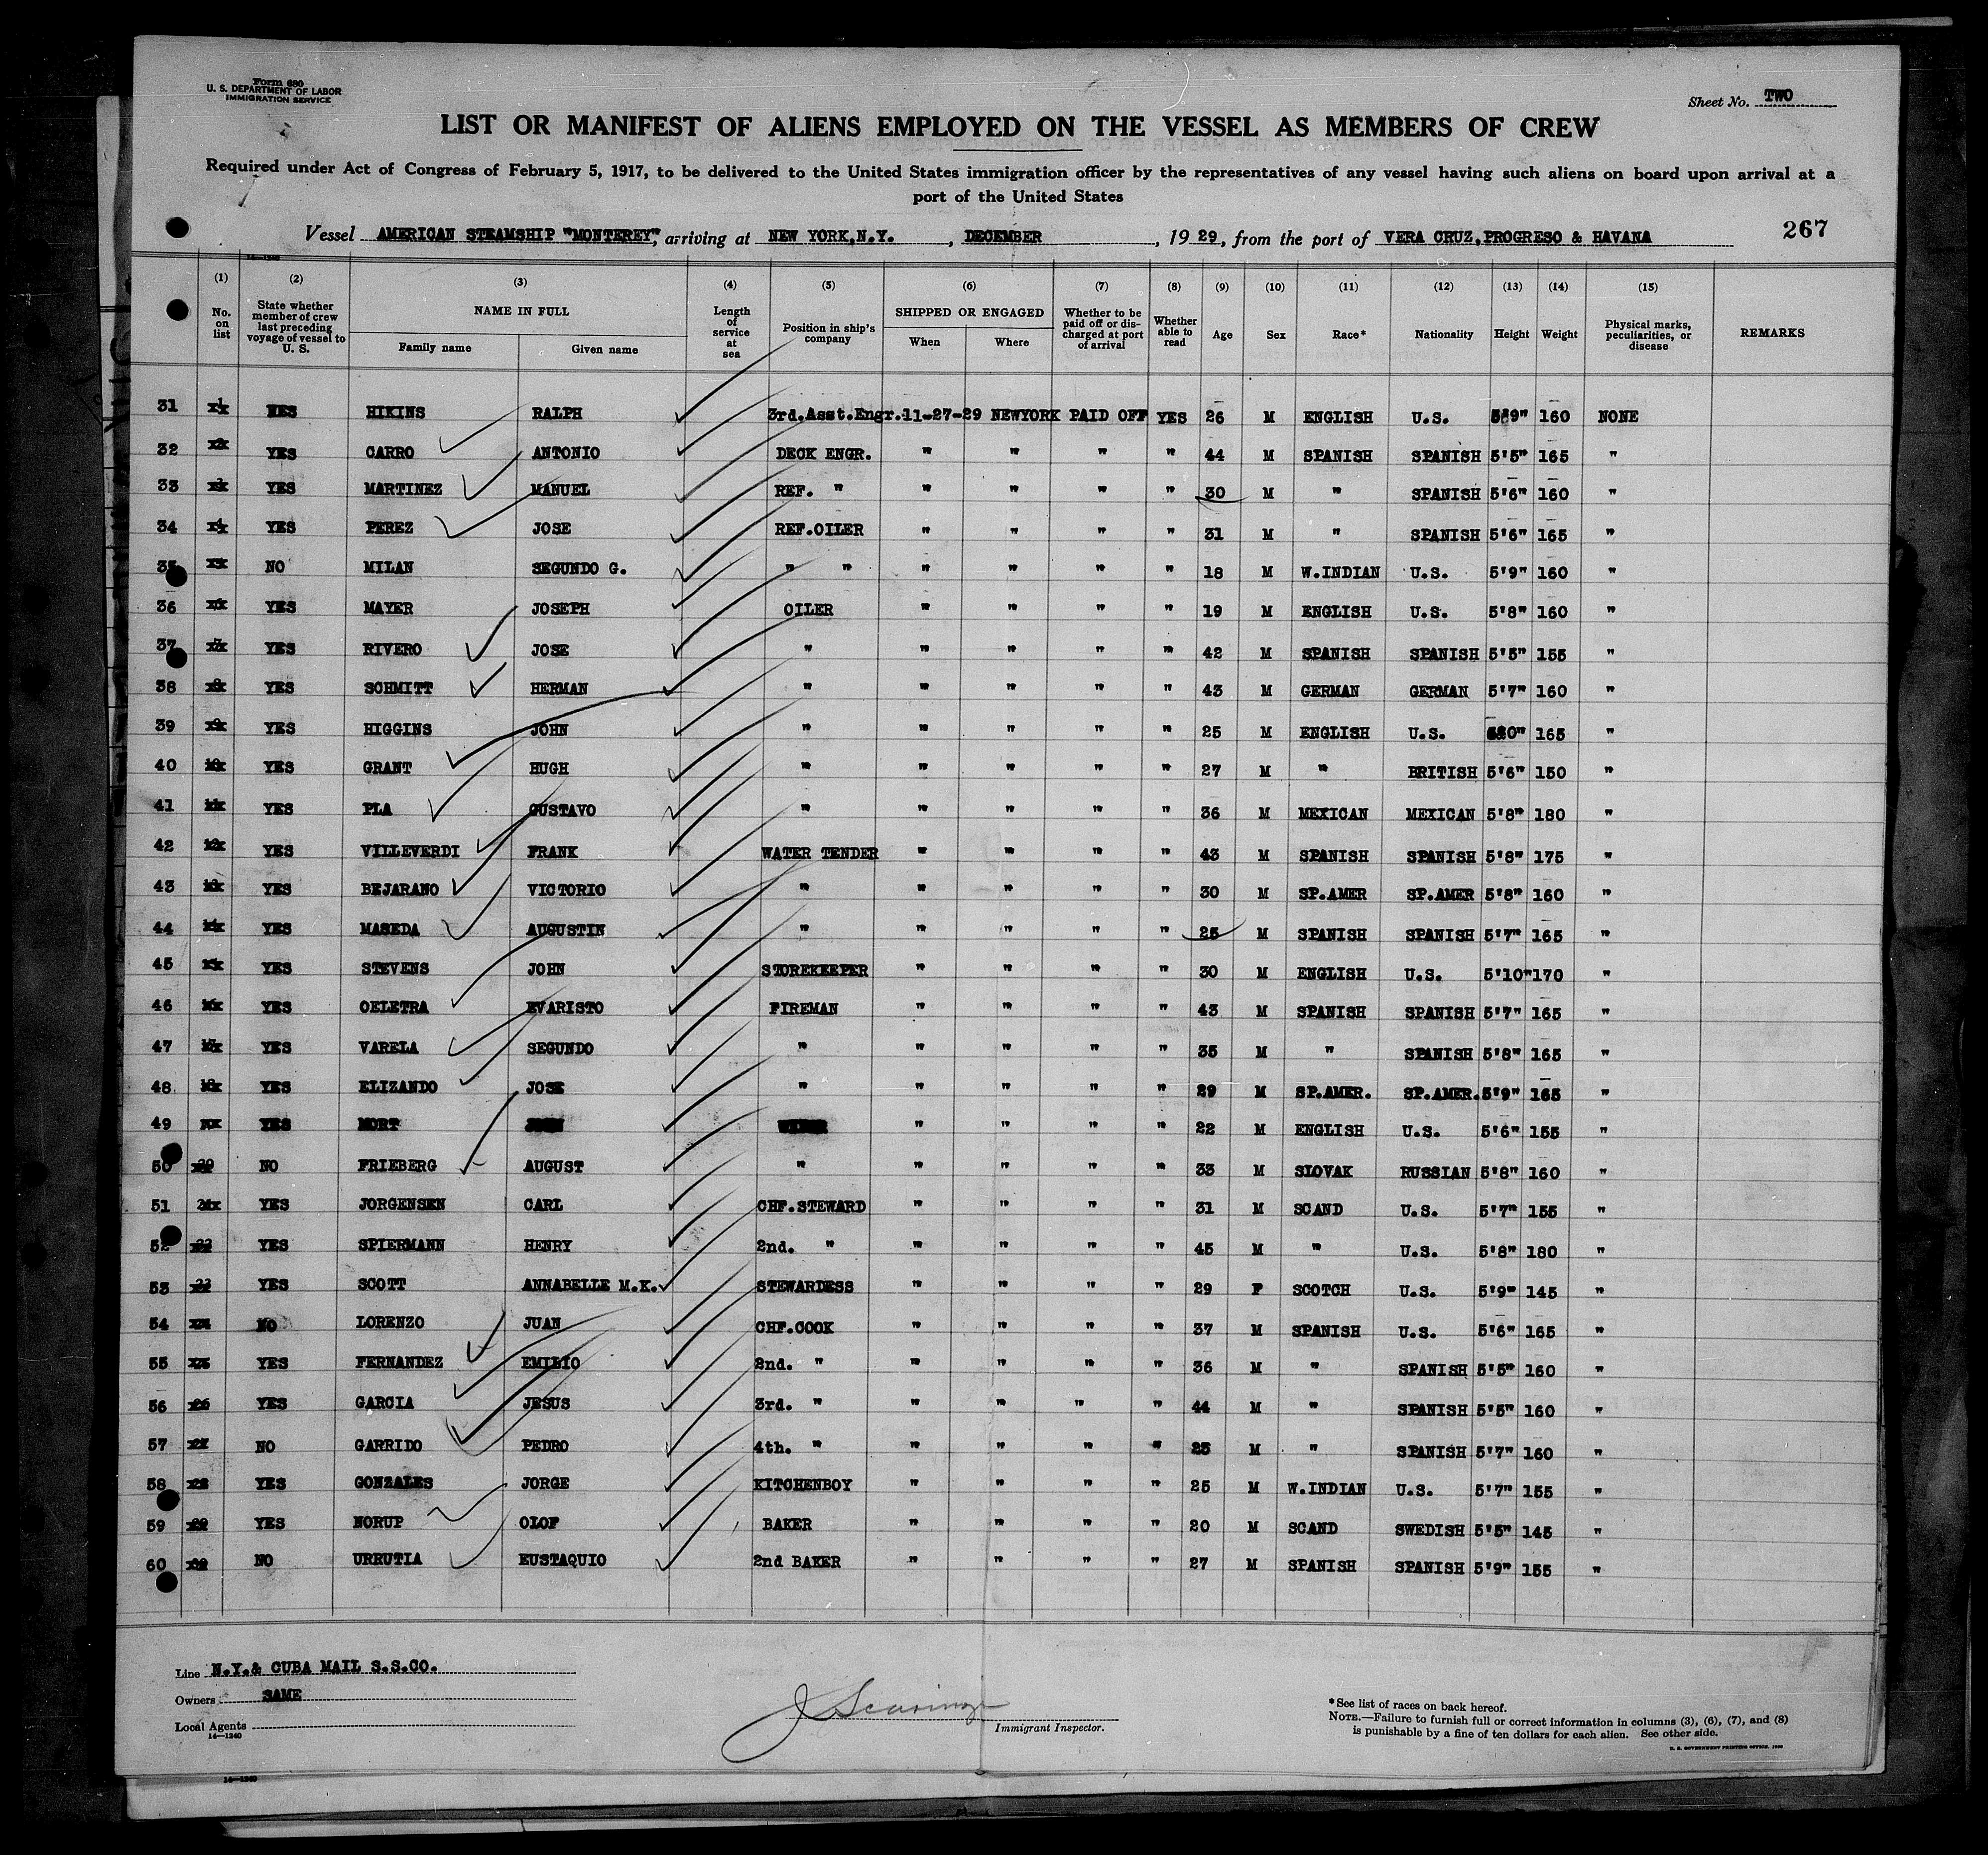 Form 680
U. S. DEPARTMENT OF LABOR
IMMIGRATION SERVICE
Sheet No. TWO
LIST OR MANIFEST OF ALIENS EMPLOYED ON THE VESSEL AS MEMBERS OF CREW
Required under Act of Congress of February 5, 1917, to be delivered to the United States immigration officer by the representatives of any vessel having such aliens on board upon arrival at a
port of the United States
Vessel AMERICAN STEAMSHIP "MONTEREY", arriving at NEW YORK, N.Y. , DECEMBER , 19 29, from the port of VERA CRUZ, PROGRESO & HAVANA 267
(1) No. on list (2) State whether member of crew last preceding voyage of vessel to U. S. (3) NAME IN FULL Family name Given name (4) Length of service at sea (5) Position in ship's company (6) SHIPPED OR ENGAGED When Where (7) Whether to be paid off or discharged at port of arrival (8) Whether able to read (9) Age (10) Sex (11) Race* (12) Nationality (13) Height (14) Weight (15) Physical marks, peculiarities, or disease REMARKS
31 YES HIKINS RALPH 3rd.Asst.Engr. 11-27-29 NEWYORK PAID OFF YES 26 M ENGLISH U.S. 5'9" 160 NONE
32 YES CARRO ANTONIO DECK ENGR. " " " " 44 M SPANISH SPANISH 5'5" 165 "
33 YES MARTINEZ MANUEL REF. " " " " " 30 M " SPANISH 5'6" 160 "
34 YES PEREZ JOSE REF.OILER " " " " 31 M " SPANISH 5'6" 165 "
35 NO MILAN SEGUNDO G. " " " " " " 18 M W.INDIAN U.S. 5'9" 160 "
36 YES MAYER JOSEPH OILER " " " " 19 M ENGLISH U.S. 5'8" 160 "
37 YES RIVERO JOSE " " " " " 42 M SPANISH SPANISH 5'5" 155 "
38 YES SCHMITT HERMAN " " " " " 43 M GERMAN GERMAN 5'7" 160 "
39 YES HIGGINS JOHN " " " " " 25 M ENGLISH U.S. 165 "
40 YES GRANT HUGH " " " " " 27 M " BRITISH 5'6" 150 "
41 YES PLA GUSTAVO " " " " " 36 M MEXICAN MEXICAN 5'8" 180 "
42 YES VILLEVERDI FRANK WATER TENDER " " " " 43 M SPANISH SPANISH 5'8" 175 "
43 YES BEJARANO VICTORIO " " " " " 30 M SP.AMER SP.AMER 5'8" 160 "
44 YES MASEDA AUGUSTIN " " " " " 25 M SPANISH SPANISH 5'7" 165 "
45 YES STEVENS JOHN STOREKEEPER " " " " 30 M ENGLISH U.S. 5'10" 170 "
46 YES OELETRA EVARISTO FIREMAN " " " " 43 M SPANISH SPANISH 5'7" 165 "
47 YES VARELA SEGUNDO " " " " " 35 M " SPANISH 5'8" 165 "
48 YES ELIZANDO JOSE " " " " " 29 M SP.AMER. SP.AMER. 5'9" 165 "
49 YES MORT " " " " 22 M ENGLISH U.S. 5'6" 155 "
50 20 NO FRIEBERG AUGUST " " " " " 33 M SLOVAK RUSSIAN 5'8" 160 "
51 YES JORGENSEN CARL CHF.STEWARD " " " " 31 M SCAND U.S. 5'7" 155 "
52 YES SPIERMANN HENRY 2nd. " " " " " 45 M " U.S. 5'8" 180 "
53 YES SCOTT ANNABELLE M.K. STEWARDESS " " " " 29 F SCOTCH U.S. 5'9" 145 "
54 NO LORENZO JUAN CHF.COOK " " " " 37 M SPANISH U.S. 5'6" 165 "
55 YES FERNANDEZ EMILIO 2nd. " " " " " 36 M " SPANISH 5'5" 160 "
56 YES GARCIA JESUS 3rd. " " " " " 44 M " SPANISH 5'5" 160 "
57 NO GARRIDO PEDRO 4th. " " " " " 23 M " SPANISH 5'7" 160 "
58 YES GONZALES JORGE KITCHENBOY " " " " 25 M W.INDIAN U.S. 5'7" 155 "
59 YES NORUP OLOF BAKER " " " " 20 M SCAND SWEDISH 5'5" 145 "
60 NO URRUTIA EUSTAQUIO 2nd BAKER " " " " 27 M SPANISH SPANISH 5'9" 155 "
Line N.Y.& CUBA MAIL S.S.CO.
Owners SAME
Local Agents
14—1240
Immigrant Inspector.
*See list of races on back hereof.
NOTE.—Failure to furnish full or correct information in columns (3), (6), (7), and (8)
is punishable by a fine of ten dollars for each alien. See other side.